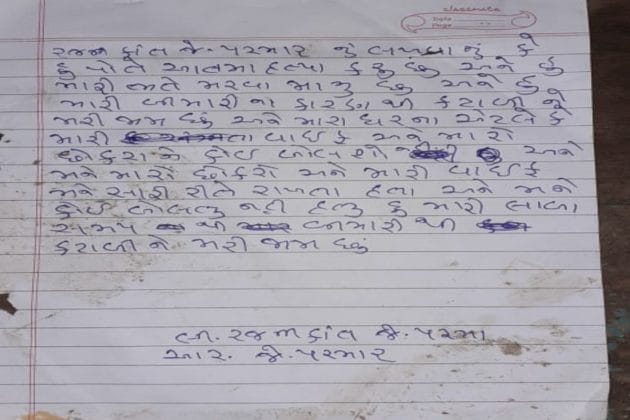 classmate
Date
Page
રજનીકાંત જે. પરમાર નું લખવાનું કે
હુ પોતે આતમાહત્યા કરું છું અને હું
મારી જાતે મરવા માગુ છું અને હું
મારી બીમારી ના કારણ થી કંટાળી ને
મરી જાઉ છું અને મારા ઘરના એટલે કે
મારી વાઈફ અને મારો
છોકરાને કોઈ બોલશો અને
મને મારો છોકરો અને મારી વાઈફ
મને સારી રીતે રાખતા હતા અને મને
કોઈ બોલતુ નહી હતુ હુ મારી લાંબા
સમય થી બીમારી થી
કંટાળી ને મરી જાઉ છું
લી. રજનીકાંત જે. પરમા
આર. જે. પરમાર